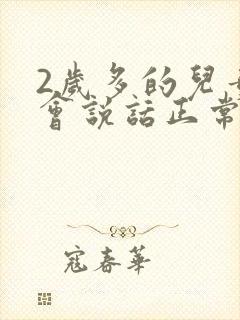 2歲多的兒
會說話正常
寇春華